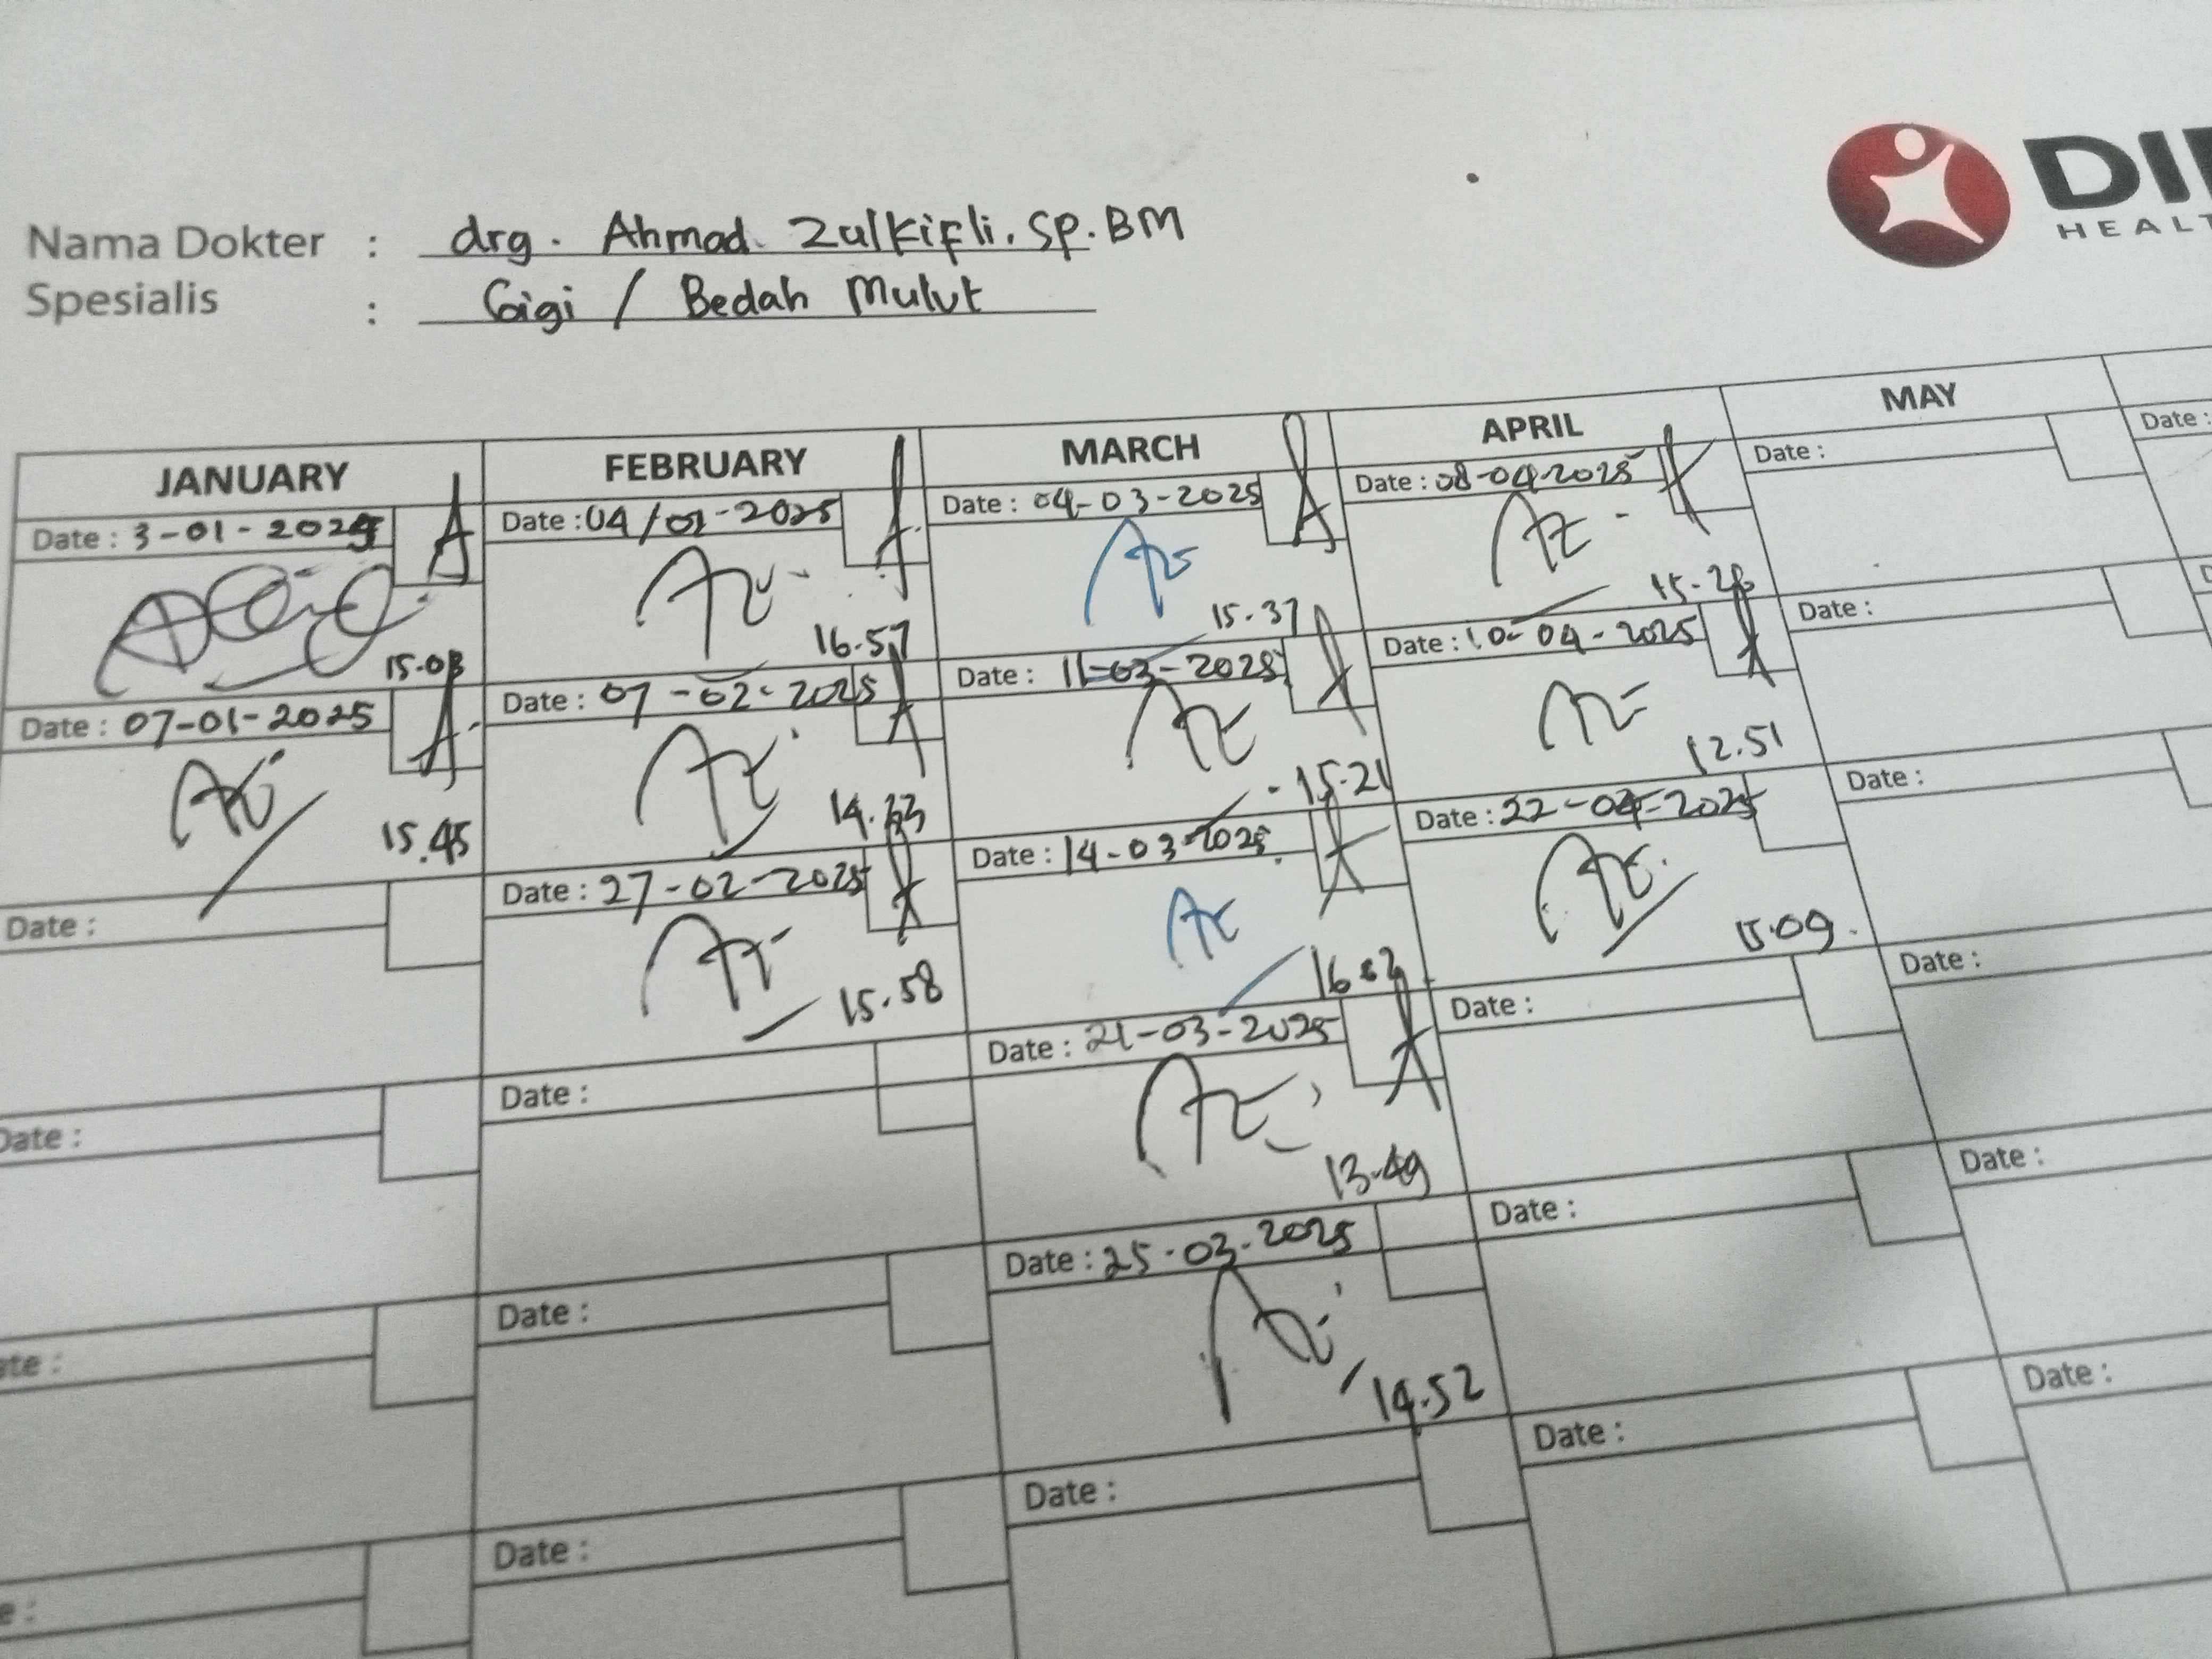 DI
HEALT
Nama Dokter : drg. Ahmad Zulkifli. Sp.BM
Spesialis : Gigi / Bedah Mulut
JANUARY FEBRUARY MARCH APRIL MAY
Date : 3-01-2025 Date : 04/02-2025 Date : 04-03-2025 Date : 08-04-2025 Date : Date :
15.03 16.57 15.37 15.28
Date : 07-01-2025 Date : 07-02-2025 Date : 11-03-2025 Date : 10-04-2025 Date :
15.45 14.33 15.21 12.51
Date : Date : 27-02-2025 Date : 14-03-2025 Date : 22-04-2025 Date :
15.58 15.09
Date : Date : Date : 21-03-2025 Date : Date :
13.49
Date : Date : 25.03.2025 Date : Date :
14.52
Date : Date : Date : Date :